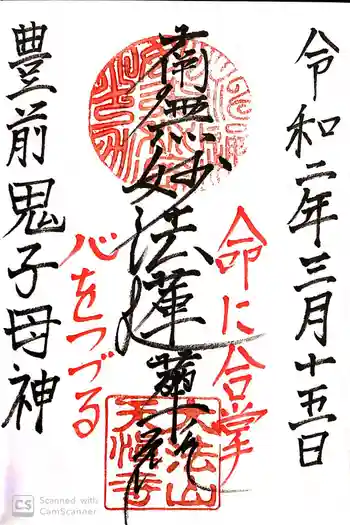 令和二年三月十五日
命に合掌
南無妙法蓮華経
心をつづる
豊前鬼子母神
大法山
天悟寺
Scanned with
CamScanner